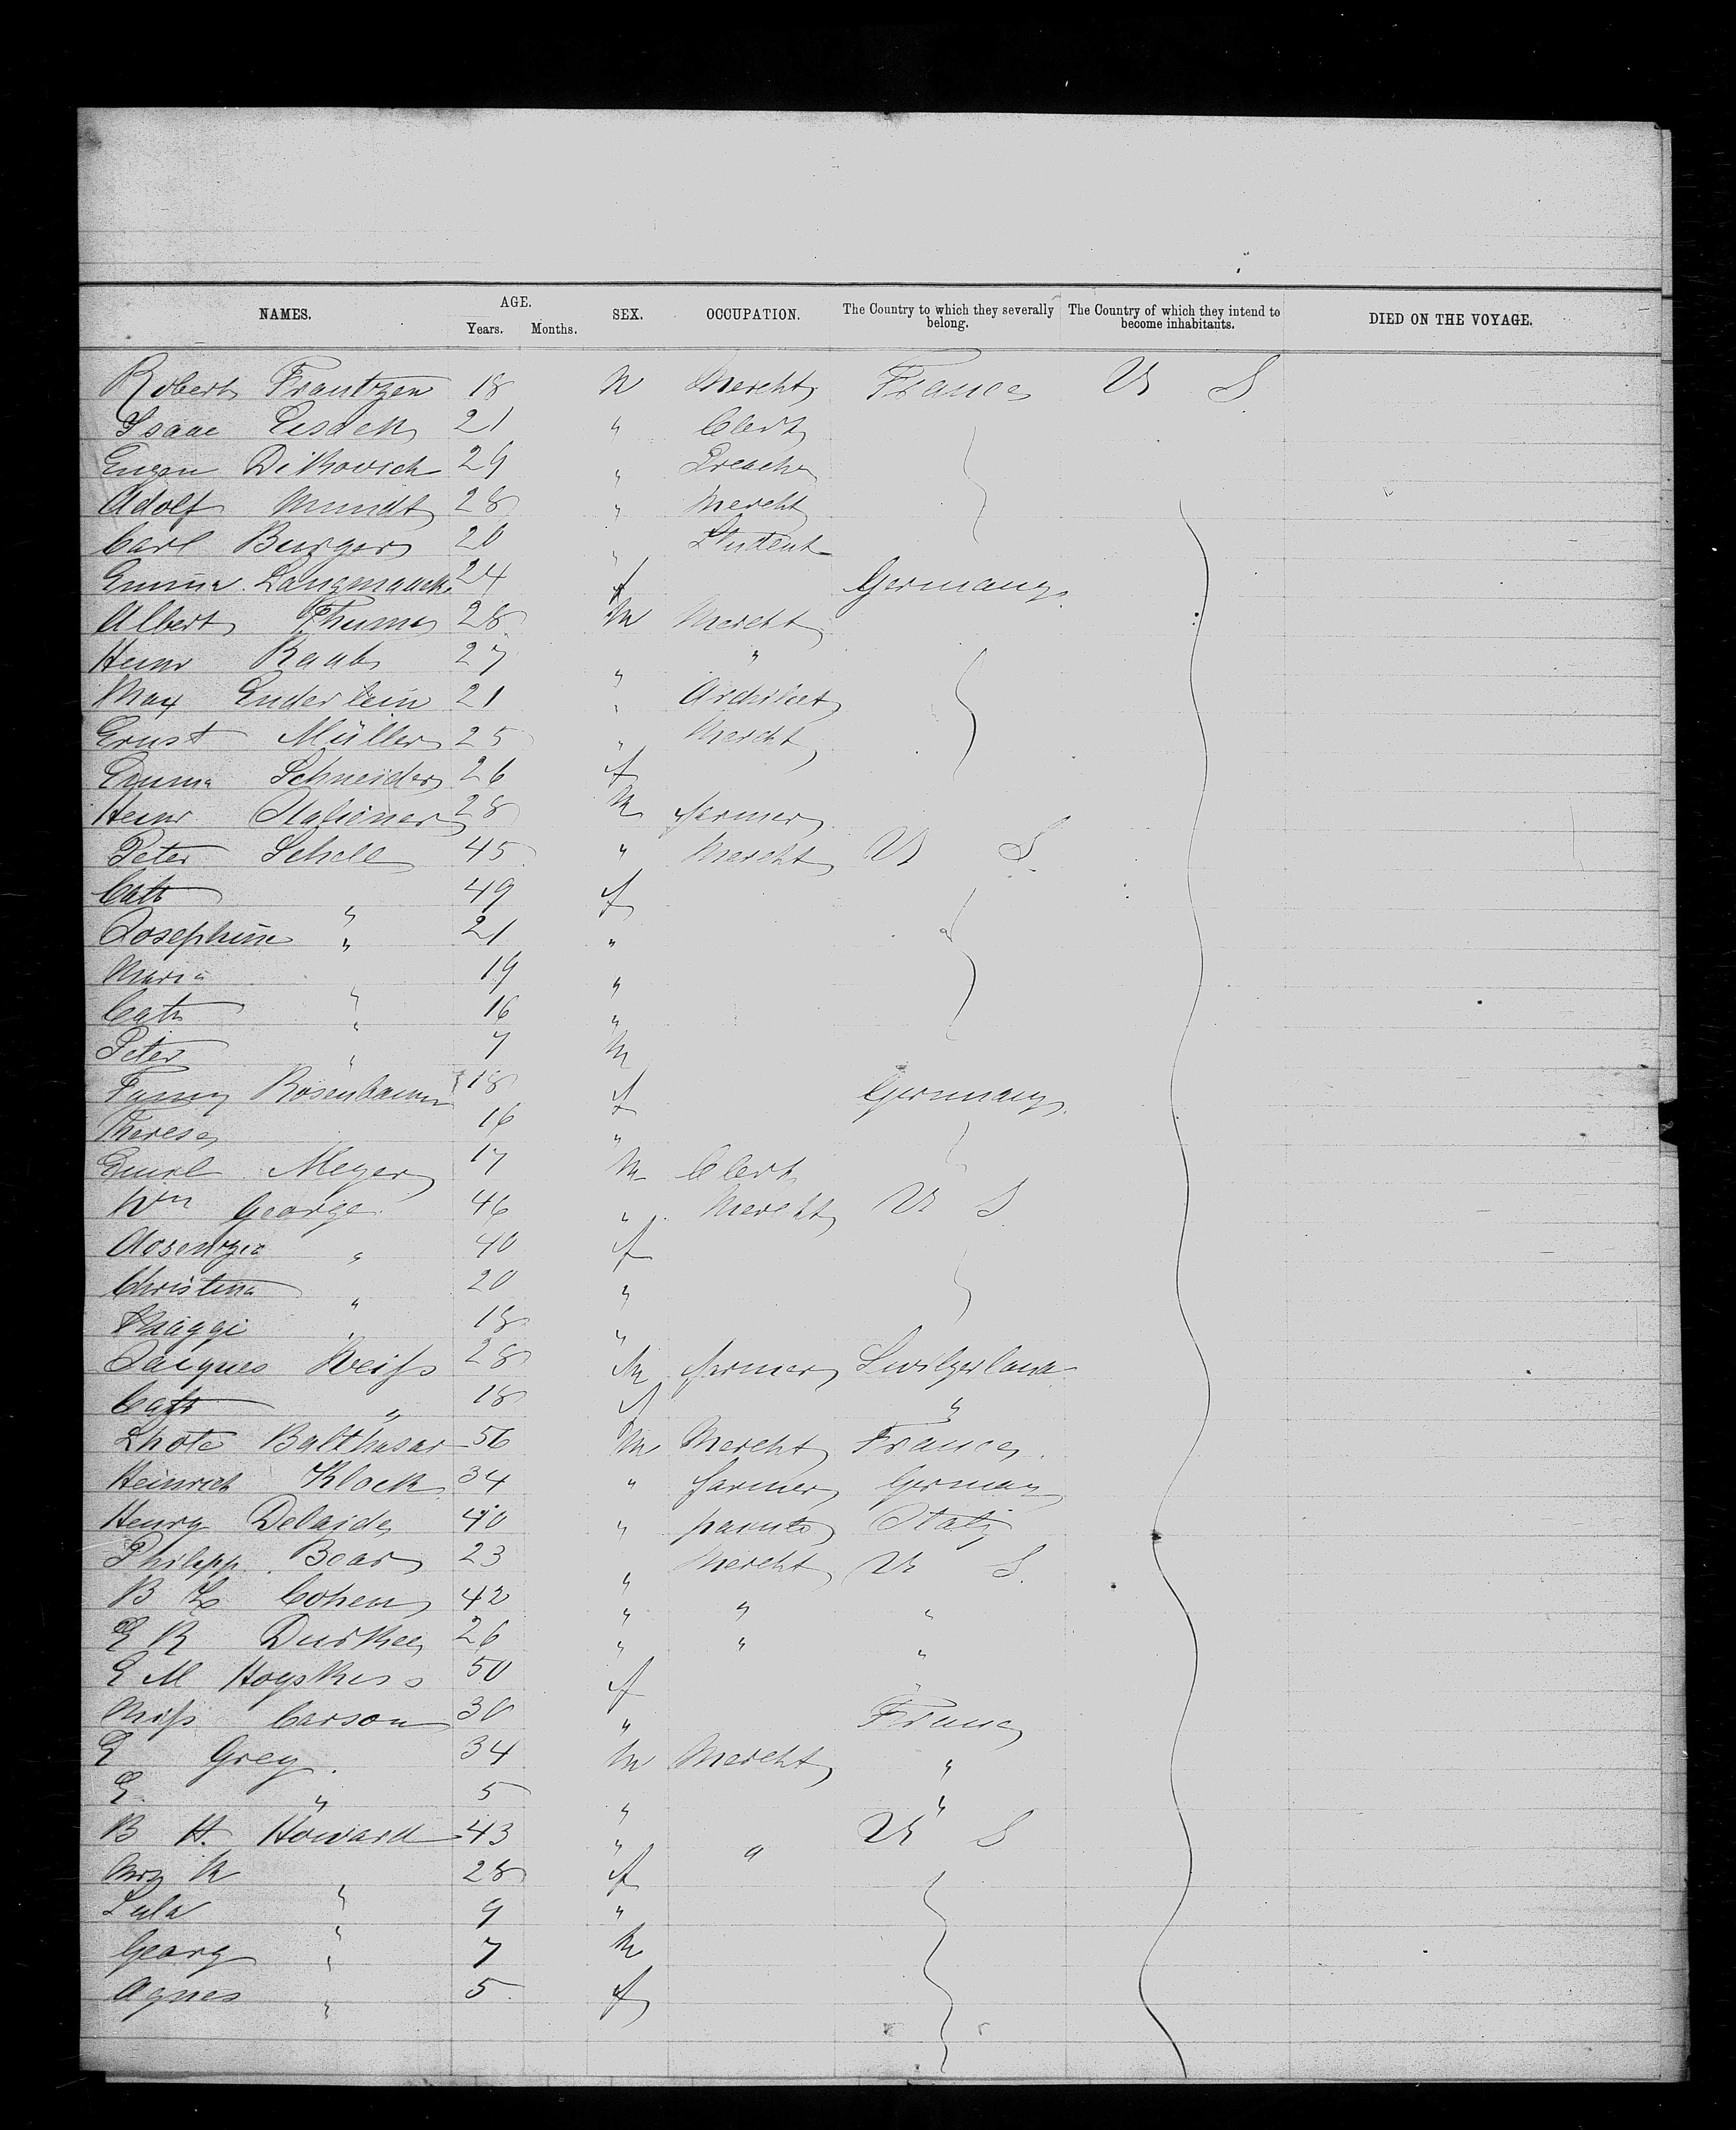 NAMES. AGE. Years. Months. SEX. OCCUPATION. The Country to which they severally belong. The Country of which they intend to become inhabitants. DIED ON THE VOYAGE.
Robert Frantzen 18 M Mercht France U S
Isaac 21 " Clerk
Eugen Dikovich 29 " Preacher
Adolf Mundt 28 " Mercht
Carl Burger 20 " Student
Emma Langmaack 24 f Germany
Albert Thume 28 M Mercht
Heinr Raab 27 " "
Max Enderlein 21 " Architect
Ernst Müller 25 " Mercht
Emma Schneider 26 f
Heinr Italiener 28 M farmer
Peter Schell 45 " Mercht U S
Cath " 49 f
Josephine " 21 "
Maria " 19 "
Cath " 16 "
Peter " 7 M
Fanny Rosenbaum 18 f Germany
Therese 16 "
Emil Meyer 17 M Clerk
Wm George 46 " Mercht U S
" 40 f
Christina " 20 "
Maggi " 18 "
Jacques Weiss 28 M farmer Switzerland
Cath " 18 f "
Lhote Balthasar 56 M Mercht France
Heinrich Klock 34 " farmer Germany
Henry Delaide 40 " painter Italy
Philipp Bear 23 " Mercht U S
B L Cohen 42 " " "
E R Durkee 26 " " "
E M 50 f "
Miss Carson 30 " France
E Grey 34 M Mercht "
E " 5 " "
B H. Howard 43 " " U S
Mrs R " 28 f
Lula " 9 "
Georg " 7 M
Agnes " 5 f